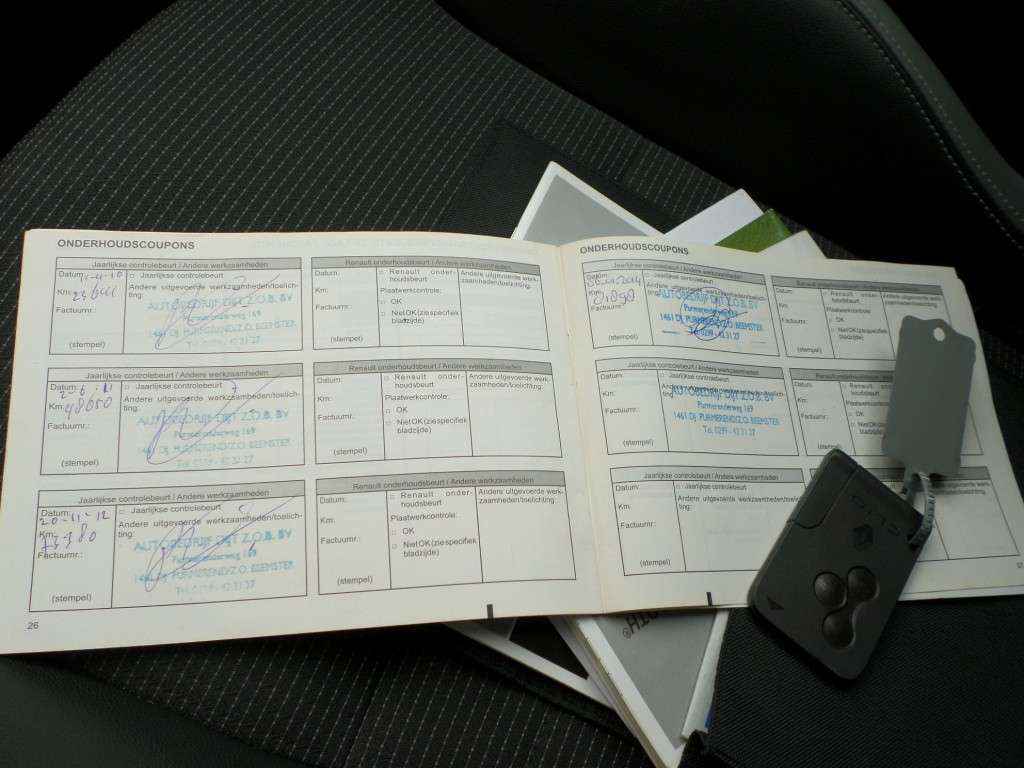 ONDERHOUDSCOUPONS
Jaarlijkse controlebeurt / Andere werkzaamheden
Datum:
□ Jaarlijkse controlebeurt
Km:
Andere uitgevoerde werkzaamheden/toelichting:
Factuurnr.:
AUTOBEDRIJF DIJT Z.O.B. BV
Purmerenderweg 169
1461 DJ PURMEREND/Z.O. BEEMSTER
(stempel)
Renault onderhoudsbeurt / Andere werkzaamheden
Datum:
□ Renault onder-
houdsbeurt
Andere uitgevoerde werk-
zaamheden/toelichting:
Km:
Plaatwerkcontrole:
□ OK
Factuurnr.:
□ Niet OK (zie specifiek
bladzijde)
(stempel)
Jaarlijkse controlebeurt / Andere werkzaamheden
Datum:
□ Jaarlijkse controlebeurt
Km:
Andere uitgevoerde werkzaamheden/toelich-
ting:
Factuurnr.:
AUTOBEDRIJF DIJT Z.O.B. BV
Purmerenderweg 169
1461 DJ PURMEREND/Z.O. BEEMSTER
(stempel)
Renault onderhoudsbeurt / Andere werkzaamheden
Datum:
□ Renault onder-
houdsbeurt
Andere uitgevoerde werk-
zaamheden/toelichting:
Km:
Plaatwerkcontrole:
□ OK
Factuurnr.:
□ Niet OK (zie specifiek
bladzijde)
(stempel)
Jaarlijkse controlebeurt / Andere werkzaamheden
Datum:
20-11-12
□ Jaarlijkse controlebeurt
Km:
Andere uitgevoerde werkzaamheden/toelich-
ting:
Factuurnr.:
AUTOBEDRIJF DIJT Z.O.B. BV
Purmerenderweg 169
1461 DJ PURMEREND/Z.O. BEEMSTER
(stempel)
Renault onderhoudsbeurt / Andere werkzaamheden
Datum:
□ Renault onder-
houdsbeurt
Andere uitgevoerde werk-
zaamheden/toelichting:
Km:
Plaatwerkcontrole:
□ OK
Factuurnr.:
□ Niet OK (zie specifiek
bladzijde)
(stempel)
26
ONDERHOUDSCOUPONS
Jaarlijkse controlebeurt / Andere werkzaamheden
Datum:
□ Jaarlijkse controlebeurt
Km:
Factuurnr.:
AUTOBEDRIJF DIJT Z.O.B. BV
Purmerenderweg 169
1461 DJ PURMEREND/Z.O. BEEMSTER
Tel. 0299 - 42 31 27
(stempel)
Datum:
□ Renault onder-
houdsbeurt
Km:
Plaatwerkcontrole
□ OK
Factuurnr.:
□ Niet OK (zie specifiek
bladzijde)
(stempel)
Jaarlijkse controlebeurt / Andere werkzaamheden
Datum:
□ Jaarlijkse controlebeurt
Km:
Factuurnr.:
AUTOBEDRIJF DIJT Z.O.B. BV
Purmerenderweg 169
1461 DJ PURMEREND/Z.O. BEEMSTER
Tel. 0299 - 42 31 27
(stempel)
Datum:
□ Renault onder-
houdsbeurt
Km:
Plaatwerkcontrole
□ OK
Factuurnr.:
□ Niet OK
(stempel)
Jaarlijkse controlebeurt / Andere werkzaamheden
Datum:
□ Jaarlijkse controlebeurt
Km:
Andere uitgevoerde werkzaamheden/toelich-
ting:
Factuurnr.:
(stempel)